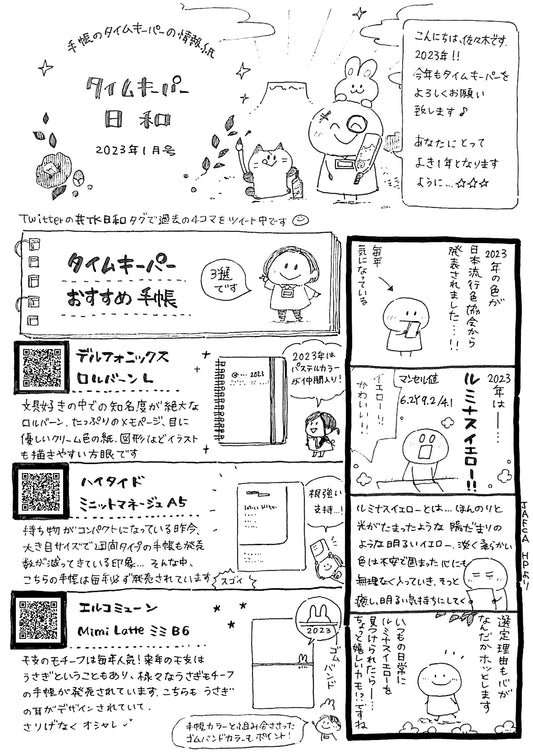 手帳のタイムキーパーの情報紙
タイムキーパー
日和
2023年1月号
こんにちは、佐々木です。
2023年!!
今年もタイムキーパーを
よろしくお願い
致します♪
あなたにとって
よき1年となります
ように…☆☆☆
Twitterの#TK日和タグで過去の4コマをツイート中です
タイムキーパー
おすすめ手帳
3選
です
デルフォニックス
ロルバーンL
2023年は
パステルカラー
が仲間入り!
文具好きの中での知名度が絶大な
ロルバーン。たっぷりのメモページ、目に
優しいクリーム色の紙、図形ほどイラスト
も描きやすい方眼です
ハイタイド
ミニットマネージュA5
根強い
支持…!
持ち物がコンパクトになっている昨今、
大き目サイズで1週間タイプの手帳も発売
数が減ってきている印象… そんな中、
こちらの手帳は毎年必ず発売されています
スゴイ
エルコミューン
Mimi Latte ミミ B6
2023
ゴムバンド
干支のモチーフは毎年人気!来年の干支は
うさぎということもあり、様々なうさぎモチーフ
の手帳が発売されています。こちらも うさぎ
の耳がデザインされていて、
さりげなく オシャレ
手帳カラーと組み合さった
ゴムバンドカラーもポイント!
2023年の色が
日本流行色協会から
発表されました…!!
毎年
気になっている
2023年は――…
ルミナスイエロー!!
マンセル値
6.2Y 9.2/4.1
イエロー!!
かわいい!!
ルミナスイエローとは…ほんのりと
光がたまったような 陽だまりの
ような明るいイエロー。淡く柔らかい
色は不安で固まった心にも
無理なく入っていき、そっと
癒し、明るい気持ちにしてく
JAFCA HPより
選定理由も心が
なんだかホッとします
いつもの日常に
ルミナスイエローを
見つけられたら……
ちょっと嬉しいカモ!?ですね